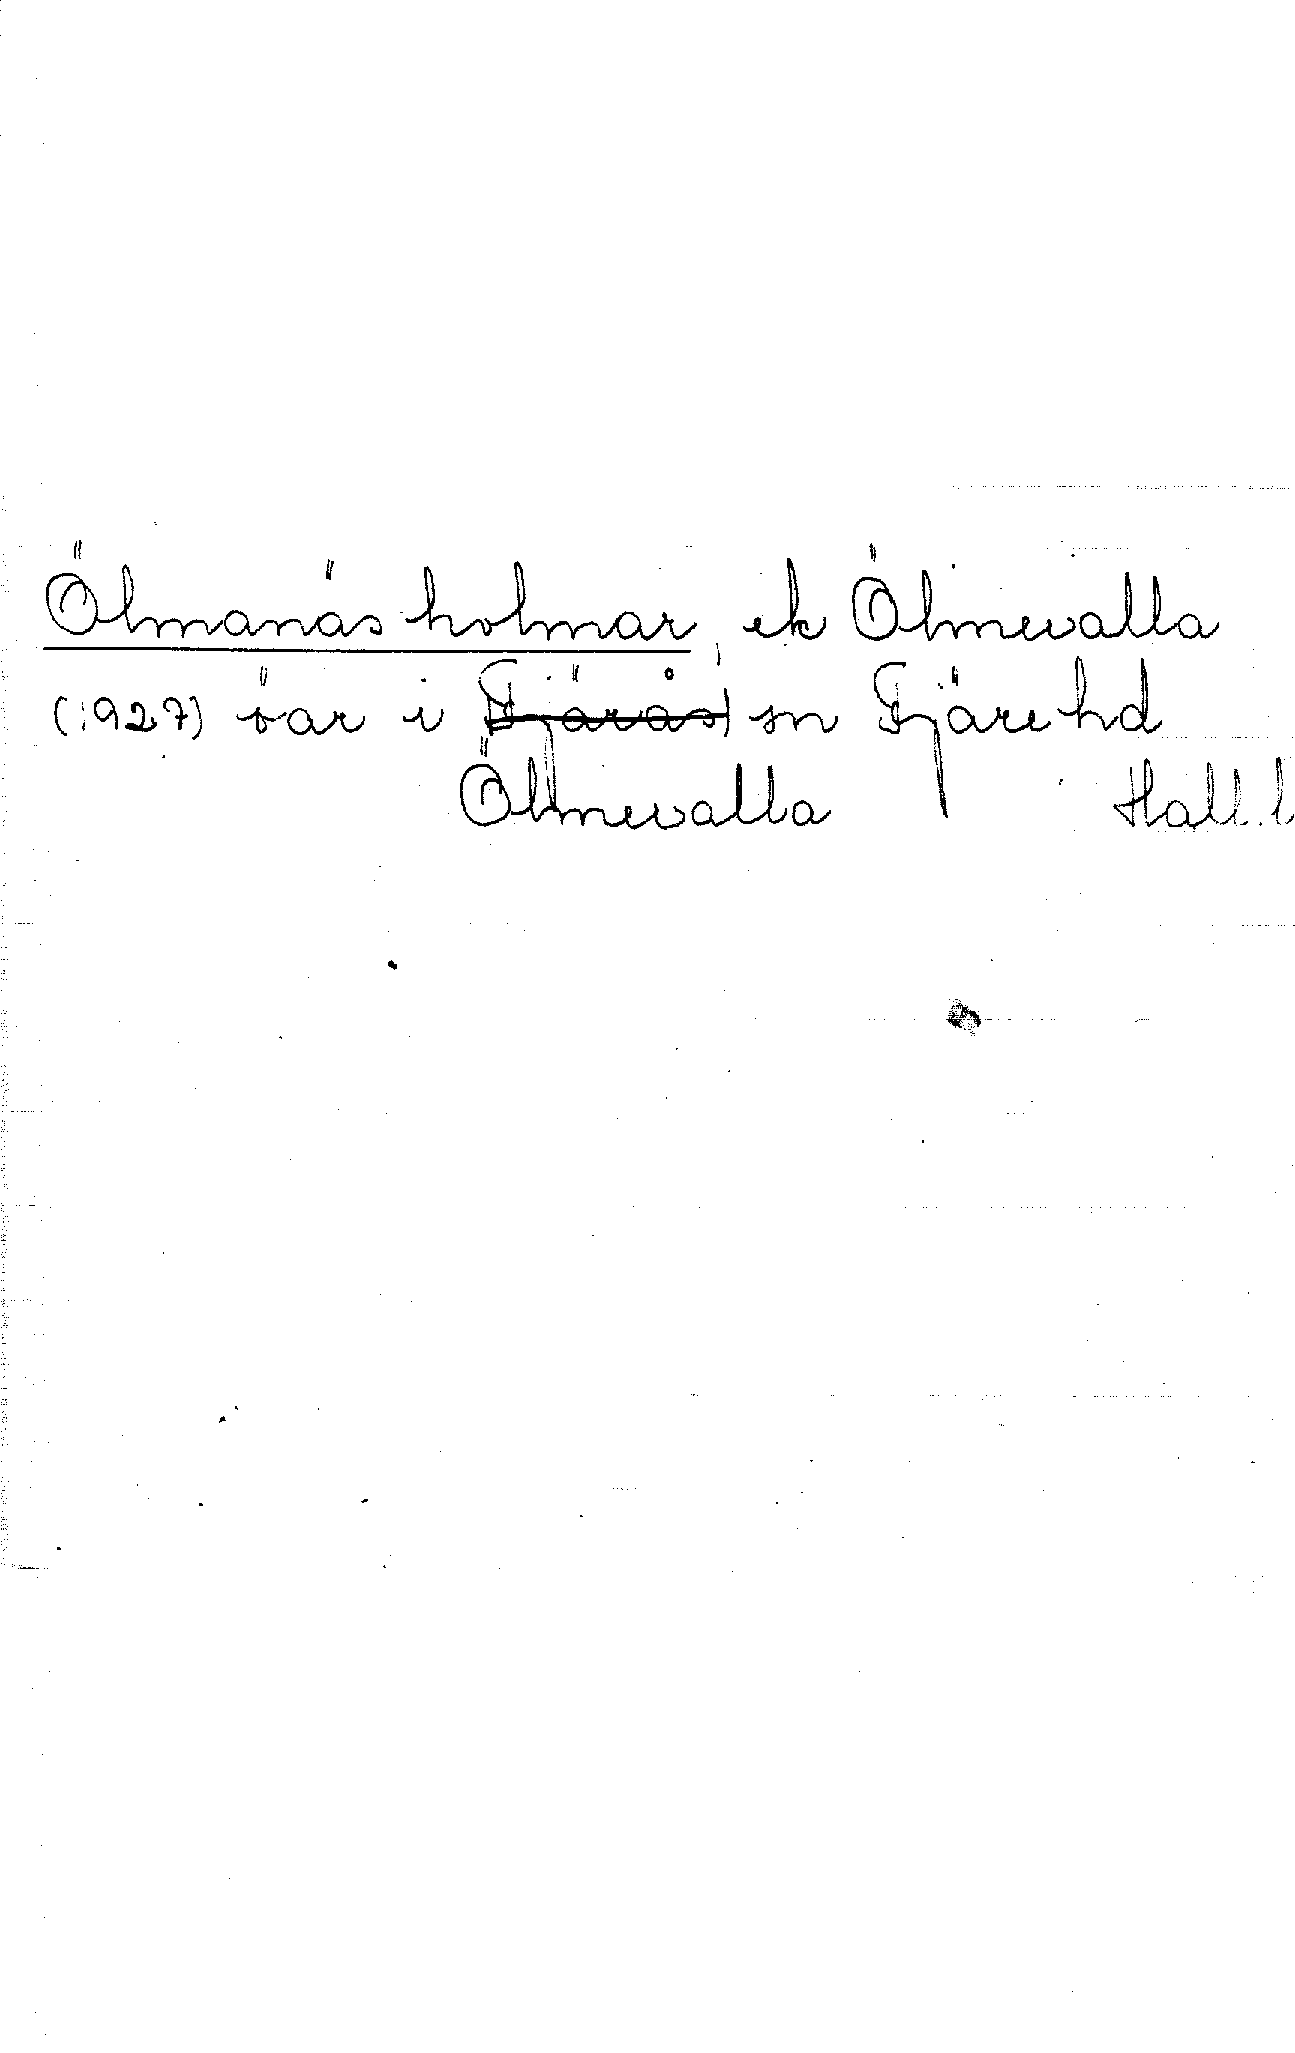 Ölmanäs holmar, ek Ölmevalla
(1927) öar i Fjärås sn Fjäre hd
Ölmevalla Hall. l